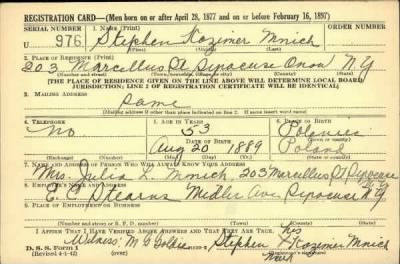 REGISTRATION CARD—(Men born on or after April 28, 1877 and on or before February 16, 1897)
SERIAL NUMBER 1. NAME (Print) ORDER NUMBER
U 976 Stephen Kozimer Mnich
(First) (Middle) (Last)
2. PLACE OF RESIDENCE (Print)
203 Marcellus St Syracuse Onon N.Y
(Number and street) (Town, township, village, or city) (County) (State)
[THE PLACE OF RESIDENCE GIVEN ON THE LINE ABOVE WILL DETERMINE LOCAL BOARD
JURISDICTION; LINE 2 OF REGISTRATION CERTIFICATE WILL BE IDENTICAL]
3. MAILING ADDRESS
Same
(Mailing address if other than place indicated on line 2. If same insert word same)
4. TELEPHONE 5. AGE IN YEARS 6. PLACE OF BIRTH
No 53
DATE OF BIRTH (Town or county)
Aug 20 1889 Poland
(Exchange) (Number) (Mo.) (Day) (Yr.) (State or country)
7. NAME AND ADDRESS OF PERSON WHO WILL ALWAYS KNOW YOUR ADDRESS
Mrs. Julia L. Mnich 203 Marcellus St Syracuse
N.Y.
8. EMPLOYER'S NAME AND ADDRESS
E. C. Stearns Midler Ave Syracuse N.Y
9. PLACE OF EMPLOYMENT OR BUSINESS
(Number and street or R. F. D. number) (Town) (County) (State)
I AFFIRM THAT I HAVE VERIFIED ABOVE ANSWERS AND THAT THEY ARE TRUE. his
D. S. S. Form 1 Witness: M Stephen X Kozemer Mnich
(Revised 4-1-42) (over) mark